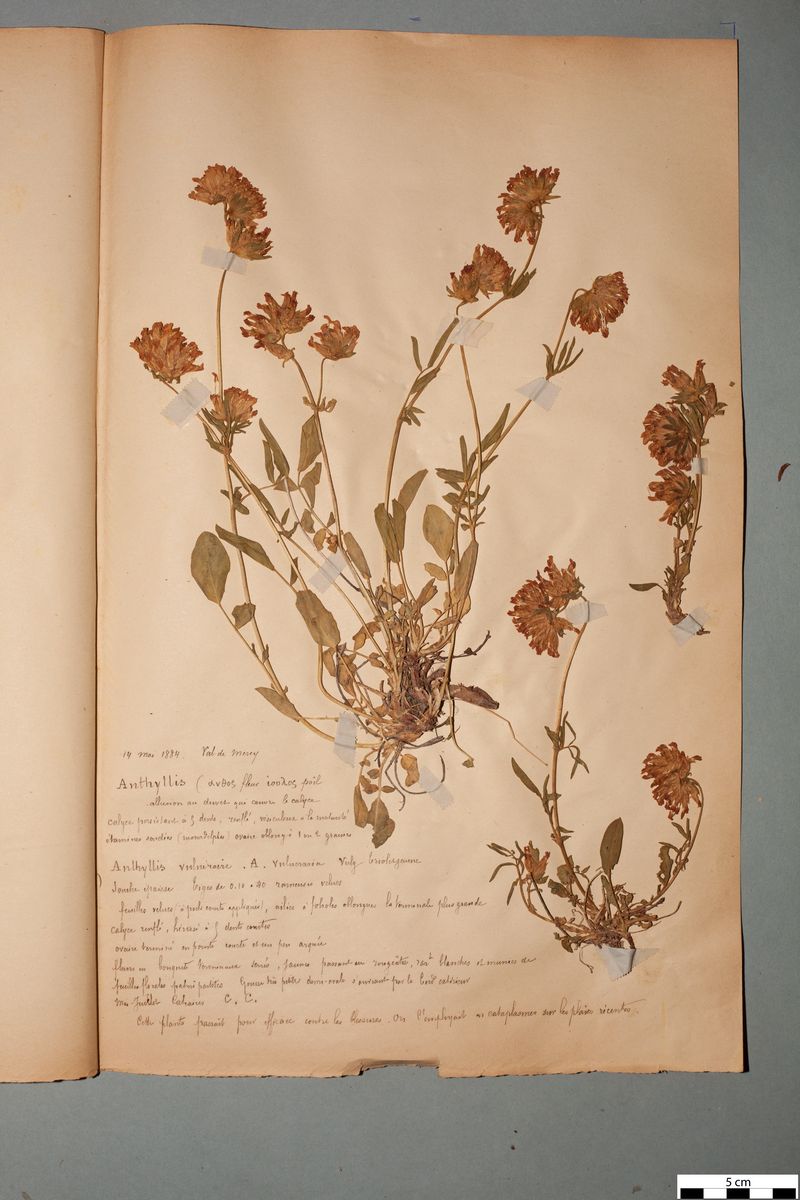 14 mai 1884. Val de Mercy
Anthyllis (ανθος fleur ιουλος poil
allusion au duvet qui couvre le calyce
calyce persistant à 5 dents, renflé, vésiculeux à la maturité
étamines soudées (monadelphes) ovaire oblong à 1 ou 2 graines
Anthyllis vulnéraire . A. vulneraria Vulg. Triolet jaune
Souche épaisse tiges de 0.10 . 40 rameuses velues
feuilles velues (à poils courts appliqués), ailées à folioles oblongues la terminale plus grande
calyce renflé, hérissé à 5 dents courtes
ovaire terminé en pointe courte et un peu arquée
fleurs en bouquets terminaux serrés, jaunes passant au rougeâtre, rart blanches et munies de
feuilles florales palmi partites Gousse très petite demi-ovale s'ouvrant par le bord extérieur
Mai Juillet Calcaires C. C.
Cette plante passait pour efficace contre les blessures. On l'employait en cataplasmes sur les plaies récentes.
5 cm